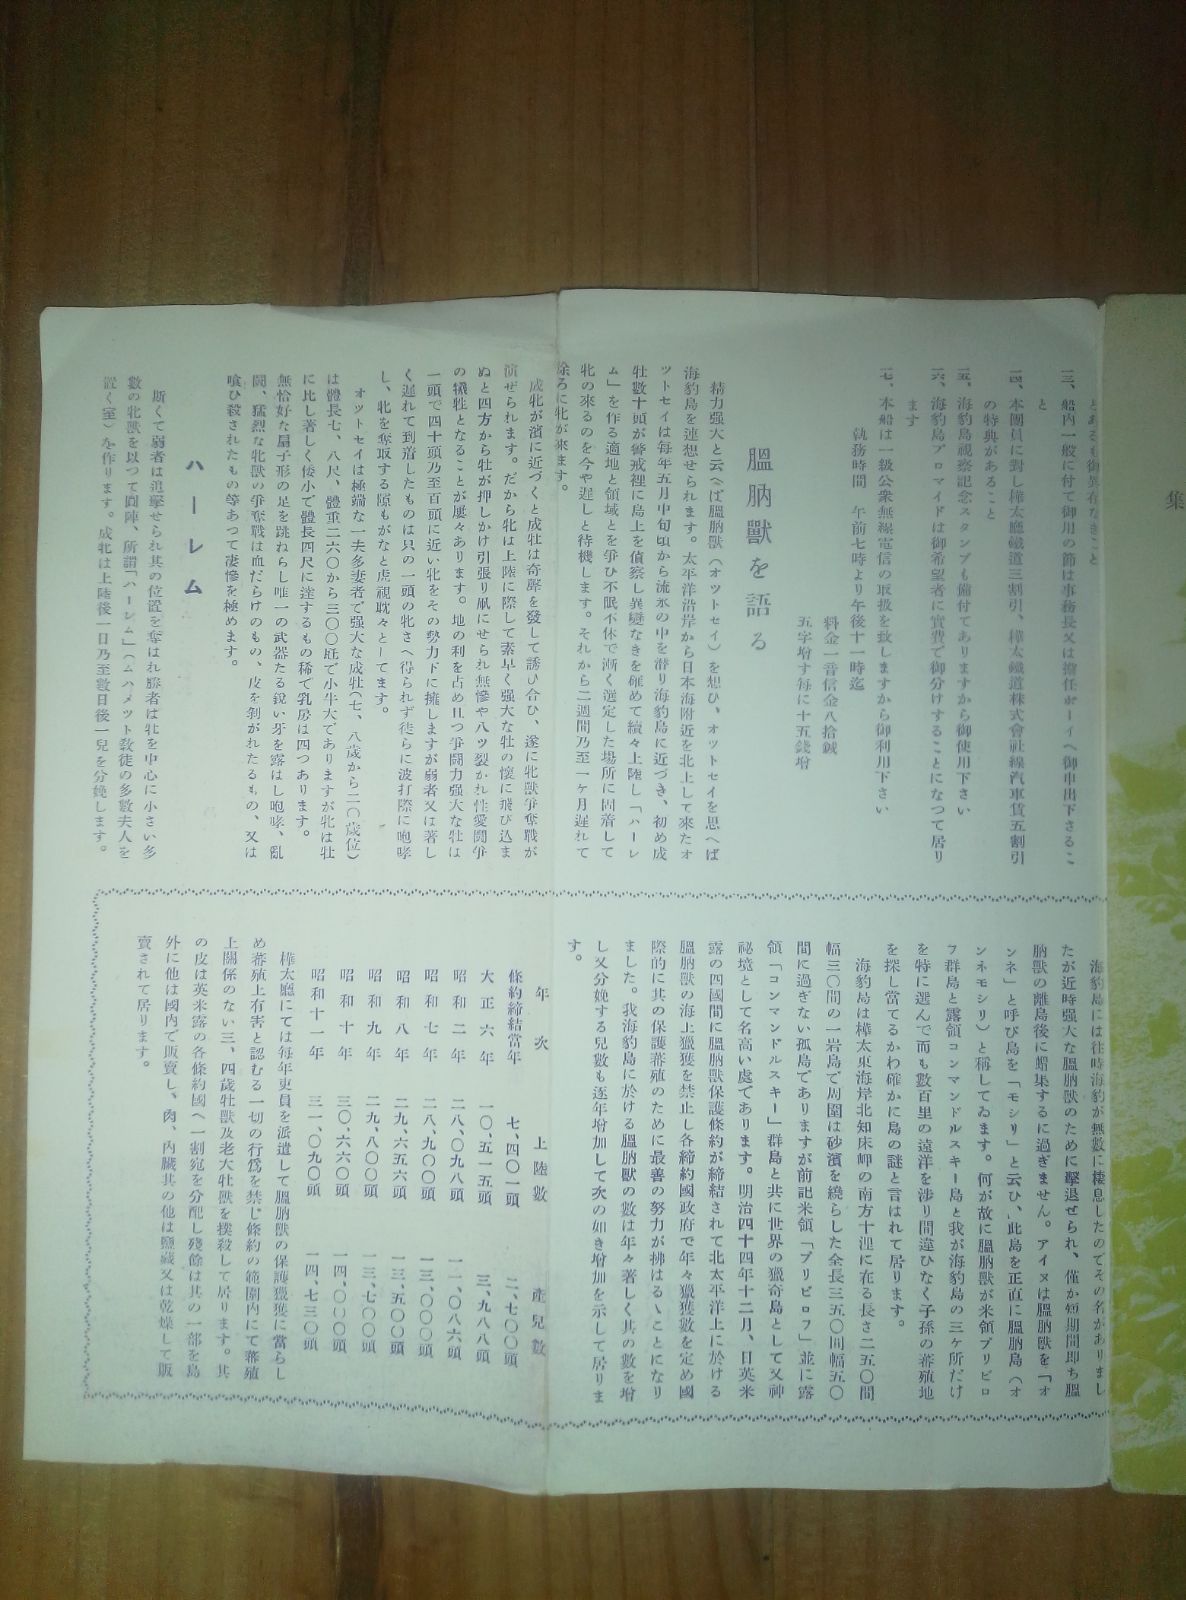 集
とあるも御異存なきこと
三、船内一般に付て御用の節は事務長又は擔任ボーイへ御申出下さるこ
と
一四、本團員に對し樺太廳鐵道三割引、樺太鐵道株式會社線汽車賃五割引
の特典があること
一五、海豹島視察記念スタンプも備付てありますから御使用下さい
一六、海豹島ブロマイドは御希望者に實費で御分けすることになつて居り
ます
一七、本船は一級公衆無線電信の取扱を致しますから御利用下さい
執務時間 午前七時より午後十一時迄
料金一音信金八拾錢
五字增す每に十五錢增
膃肭獸を語る
精力强大と云へば膃肭獸（オツトセイ）を想ひ、オットセイを思へば
海豹島を連想せられます。太平洋沿岸から日本海附近を北上して來たオ
ットセイは每年五月中旬頃から流氷の中を潜り海豹島に近づき、初め成
牡數十頭が警戒裡に島上を偵察し異變なきを確めて續々上陸し「ハーレ
ム」を作る適地と領域とを爭ひ不眠不休で漸く選定した場所に固着して
牝の來るのを今や遲しと待機します。それから二週間乃至一ヶ月遲れて
徐ろに牝が來ます。
成牝が濱に近づくと成牡は奇聲を發して誘ひ合ひ、遂に牝獸爭奪戰が
演ぜられます。だから牝は上陸に際して素早く强大な牡の懷に飛び込ま
ぬと四方から牡が押しかけ引張り凧にせられ無慘や八ツ裂かれ性愛鬪爭
の犧牲となることが屢々あります。地の利を占め且つ爭鬪力强大な牡は
一頭で四十頭乃至百頭に近い牝をその勢力下に擁しますが弱者又は著し
く遲れて到着したものは只の一頭の牝さへ得られず徒らに波打際に咆哮
し、牝を奪取する隙もがなと虎視眈々としてます。
オットセイは極端な一夫多妻者で强大な成牡（七、八歳から二〇歳位）
は體長七、八尺、體重二六〇から三〇〇瓩で小牛大でありますが牝は牡
に比し著しく倭小で體長四尺に達するもの稀で乳房は四つあります。
無恰好な扇子形の足を跳ねらし唯一の武器たる銳い牙を露はし咆哮、亂
鬪、猛烈な牝獸の爭奪戰は血だらけのもの、皮を剝がれたるもの、又は
喰ひ殺されたもの等あつて凄慘を極めます。
ハーレム
斯くて弱者は追擊せられ其の位置を奪はれ勝者は牡を中心に小さい多
數の牝獸を以つて圓陣、所謂「ハーレム」（ムハメット敎徒の多數夫人を
置く室）を作ります。成牝は上陸後一日乃至數日後一兒を分娩します。
海豹島には往時海豹が無數に棲息したのでその名がありまし
たが近時强大な膃肭獸のために擊退せられ、僅か短期間即ち膃
肭獸の離島後に蝟集するに過ぎません。アイヌは膃肭獸を「オ
ンネ」と呼び島を「モシリ」と云ひ、此島を正直に膃肭島（オ
ンネモシリ）と稱してゐます。何が故に膃肭獸が米領プリビロ
フ群島と露領コンマンドルスキー島と我が海豹島の三ヶ所だけ
を特に選んで而も數百里の遠洋を涉り間違ひなく子孫の蕃殖地
を探し當てるかわ確かに島の謎と言はれて居ります。
海豹島は樺太東海岸北知床岬の南方十浬に在る長さ二五〇間
幅三〇間の一岩島で周圍は砂濱を繞らした全長三五〇間幅五〇
間に過ぎない孤島でありますが前記米領「プリビロフ」並に露
領「コンマンドルスキー」群島と共に世界の獵奇島として又神
祕境として名高い處であります。明治四十四年十二月、日英米
露の四國間に膃肭獸保護條約が締結されて北太平洋上に於ける
膃肭獸の海上獵獲を禁止し各締約國政府で年々獵獲數を定め國
際的に其の保護蕃殖のために最善の努力が拂はるゝことになり
ました。我海豹島に於ける膃肭獸の數は年々著しく其の數を增
し又分娩する兒數も逐年增加して次の如き增加を示して居りま
す。
年次 上陸數 產兒數
條約締結當年 七、四〇一頭 二、七〇〇頭
大正六年 一〇、五一五頭 三、九八八頭
昭和二年 二八、〇九八頭 一一、〇八六頭
昭和七年 二八、九〇〇頭 一三、〇〇〇頭
昭和八年 二九、六五六頭 一三、五〇〇頭
昭和九年 二九、八〇〇頭 一三、七〇〇頭
昭和十年 三〇、六六〇頭 一四、〇〇〇頭
昭和十一年 三一、〇九〇頭 一四、七三〇頭
樺太廳にては每年吏員を派遣して膃肭獸の保護獵獲に當らし
め蕃殖上有害と認むる一切の行爲を禁じ條約の範圍內にて蕃殖
上關係のない三、四歳牡獸及老大牡獸を撲殺して居ります。其
の皮は英米露の各條約國へ一割宛を分配し殘餘は其の一部を島
外に他は國內で販賣し、肉、內臟其の他は鹽藏又は乾燥して販
賣されて居ります。